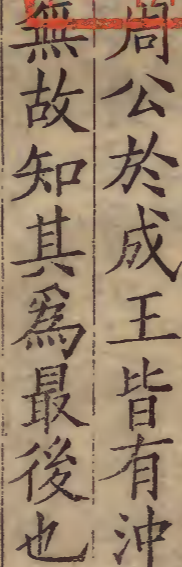 周公於成王皆有沖
無故知其為最後也